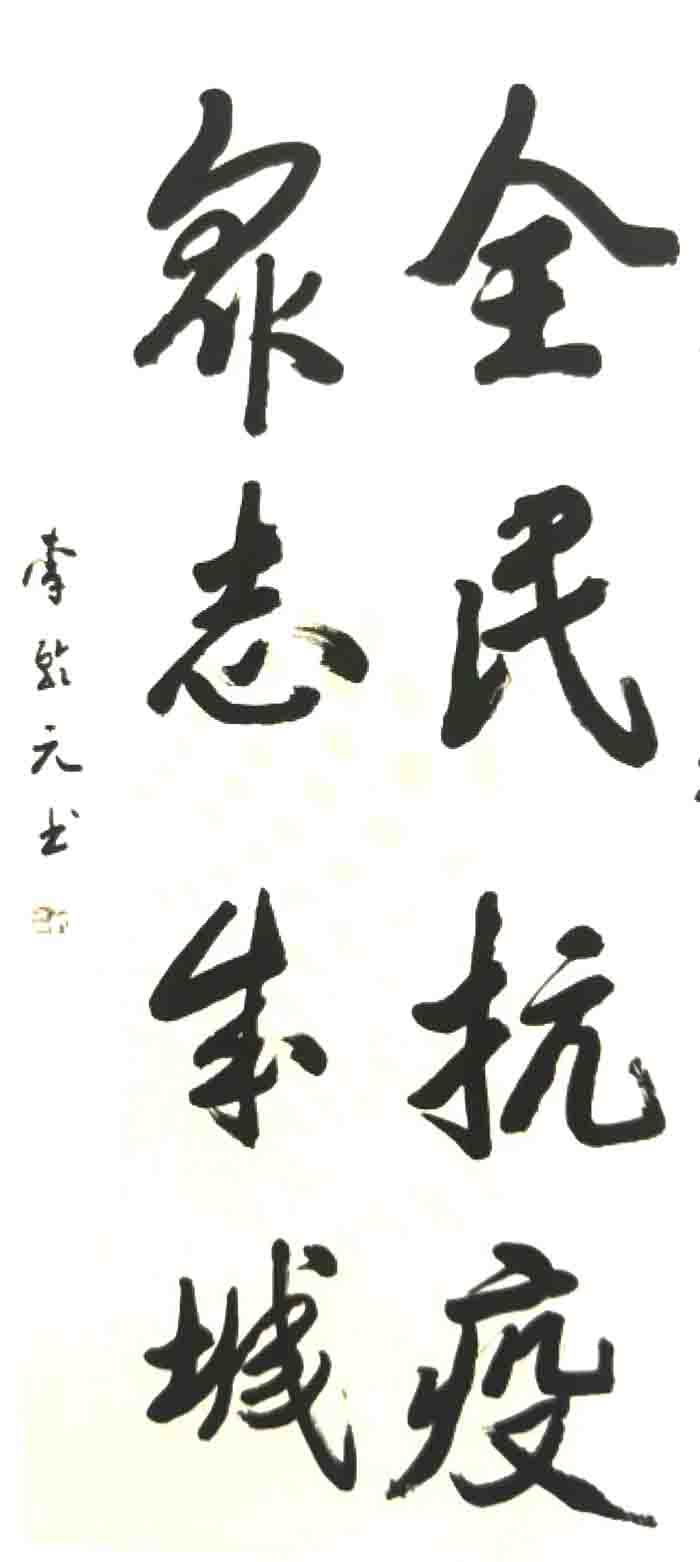 全民抗疫
众志成城
李乾元书